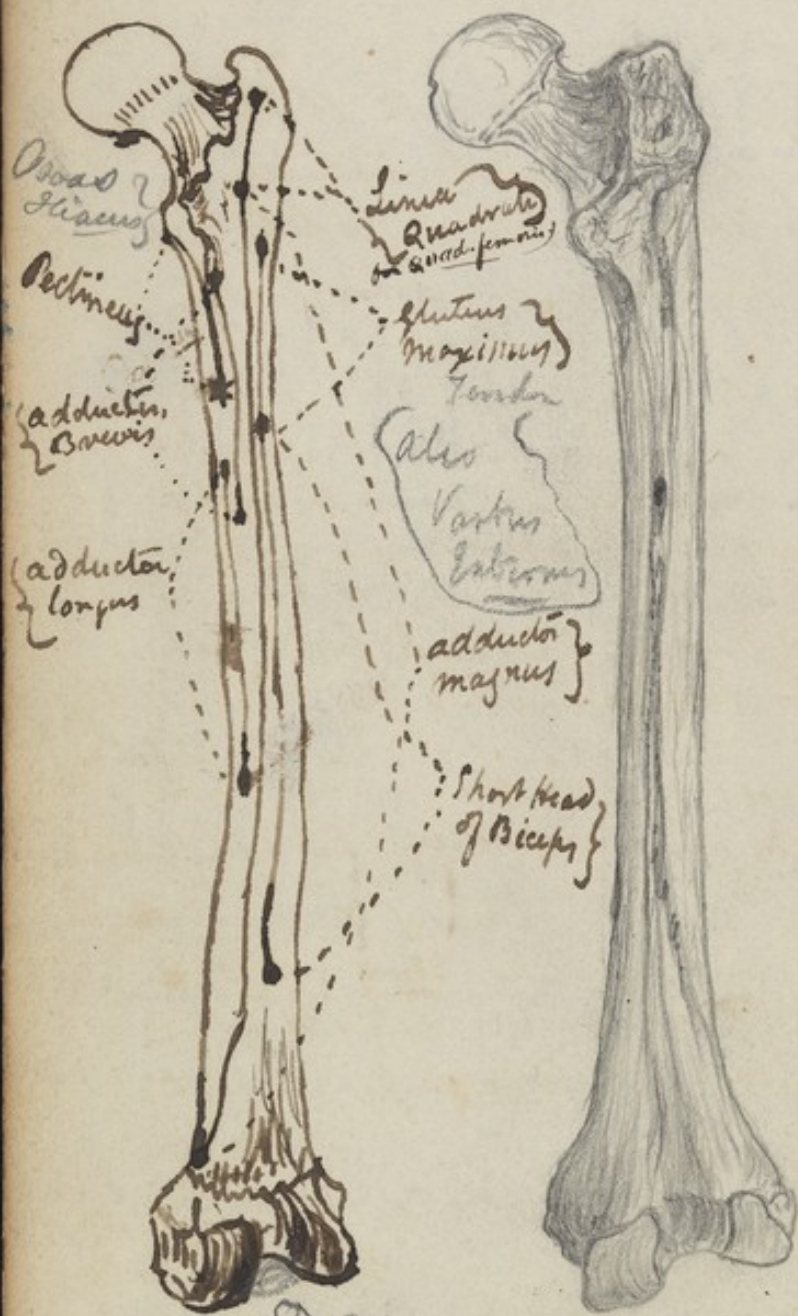 Psoas
Iliacus
Pectineus
adductor
Brevis
adductor
longus
Linea
Quadrati
or Quad. femoris
Gluteus
Maximus
Tendon
Also
Vastus
Externus
adductor
magnus
Short Head
of Biceps